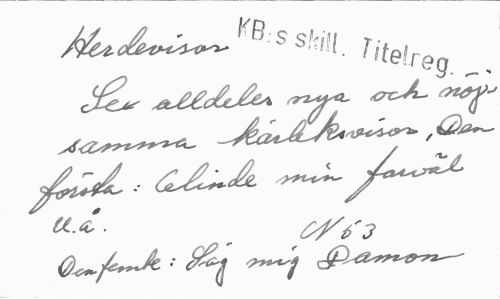 Herdevisor
KB:s skill. Titelreg.
Sex alldeles nya och nöj-
samma kärleksvisor, Den
första: Celinde min farväl
U.å.
N 53
Den femte: Säg mig Damon